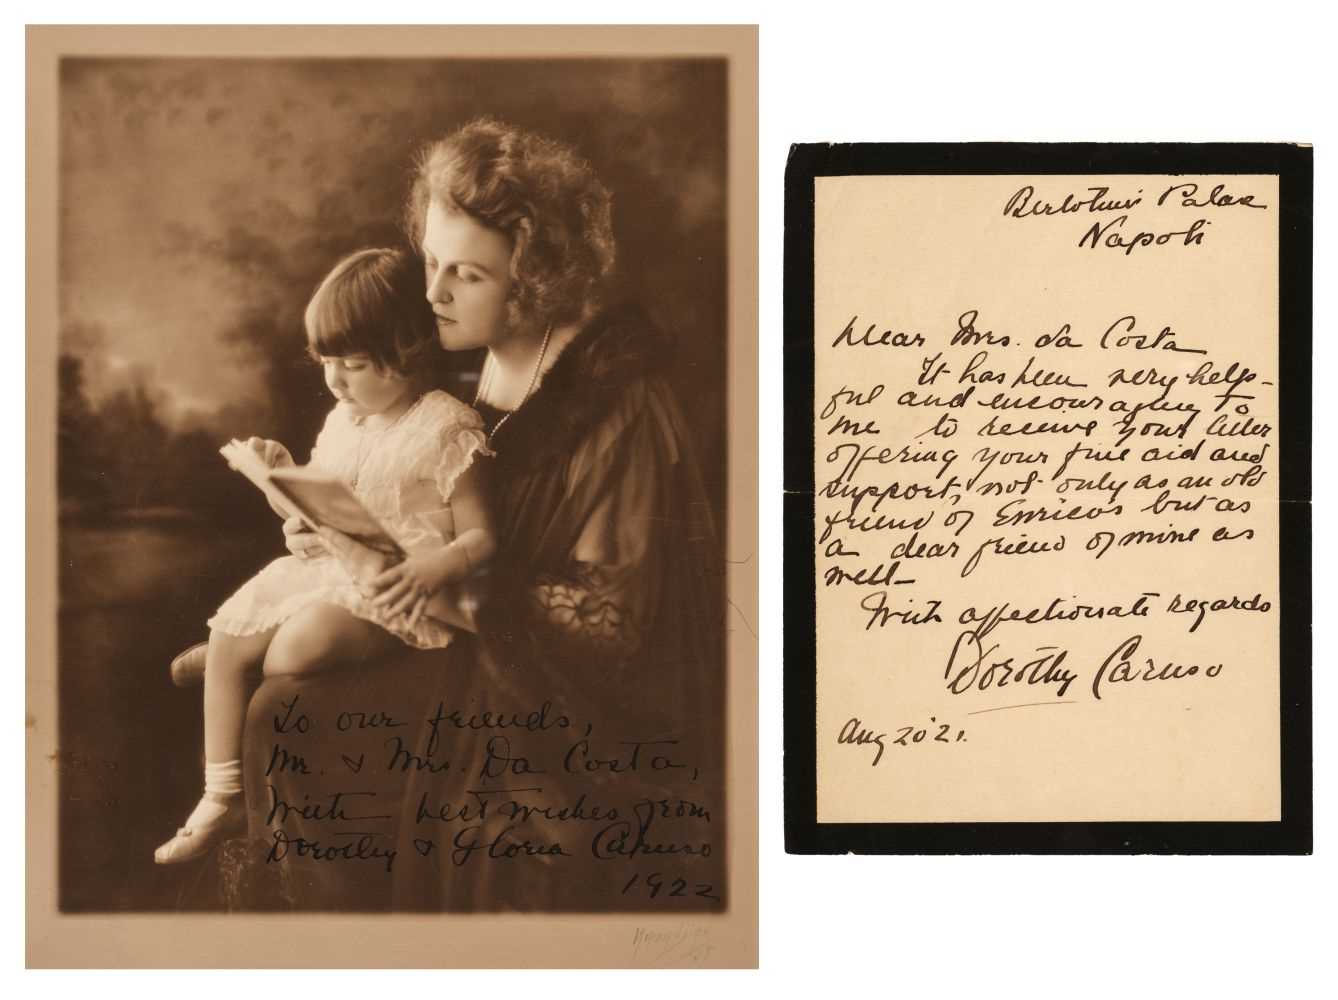 To our friends,
Mr. & Mrs. Da Costa,
With best wishes from
Dorothy & Gloria Caruso
1922
Bertolini Palace
Napoli
Dear Mrs. da Costa
It has been very help-
ful and encouraging to
me to receive your letter
offering your fine aid and
support, not only as an old
friend of Enricos but as
a dear friend of mine as
well—
With affectionate regards
Dorothy Caruso
Aug 20'21.